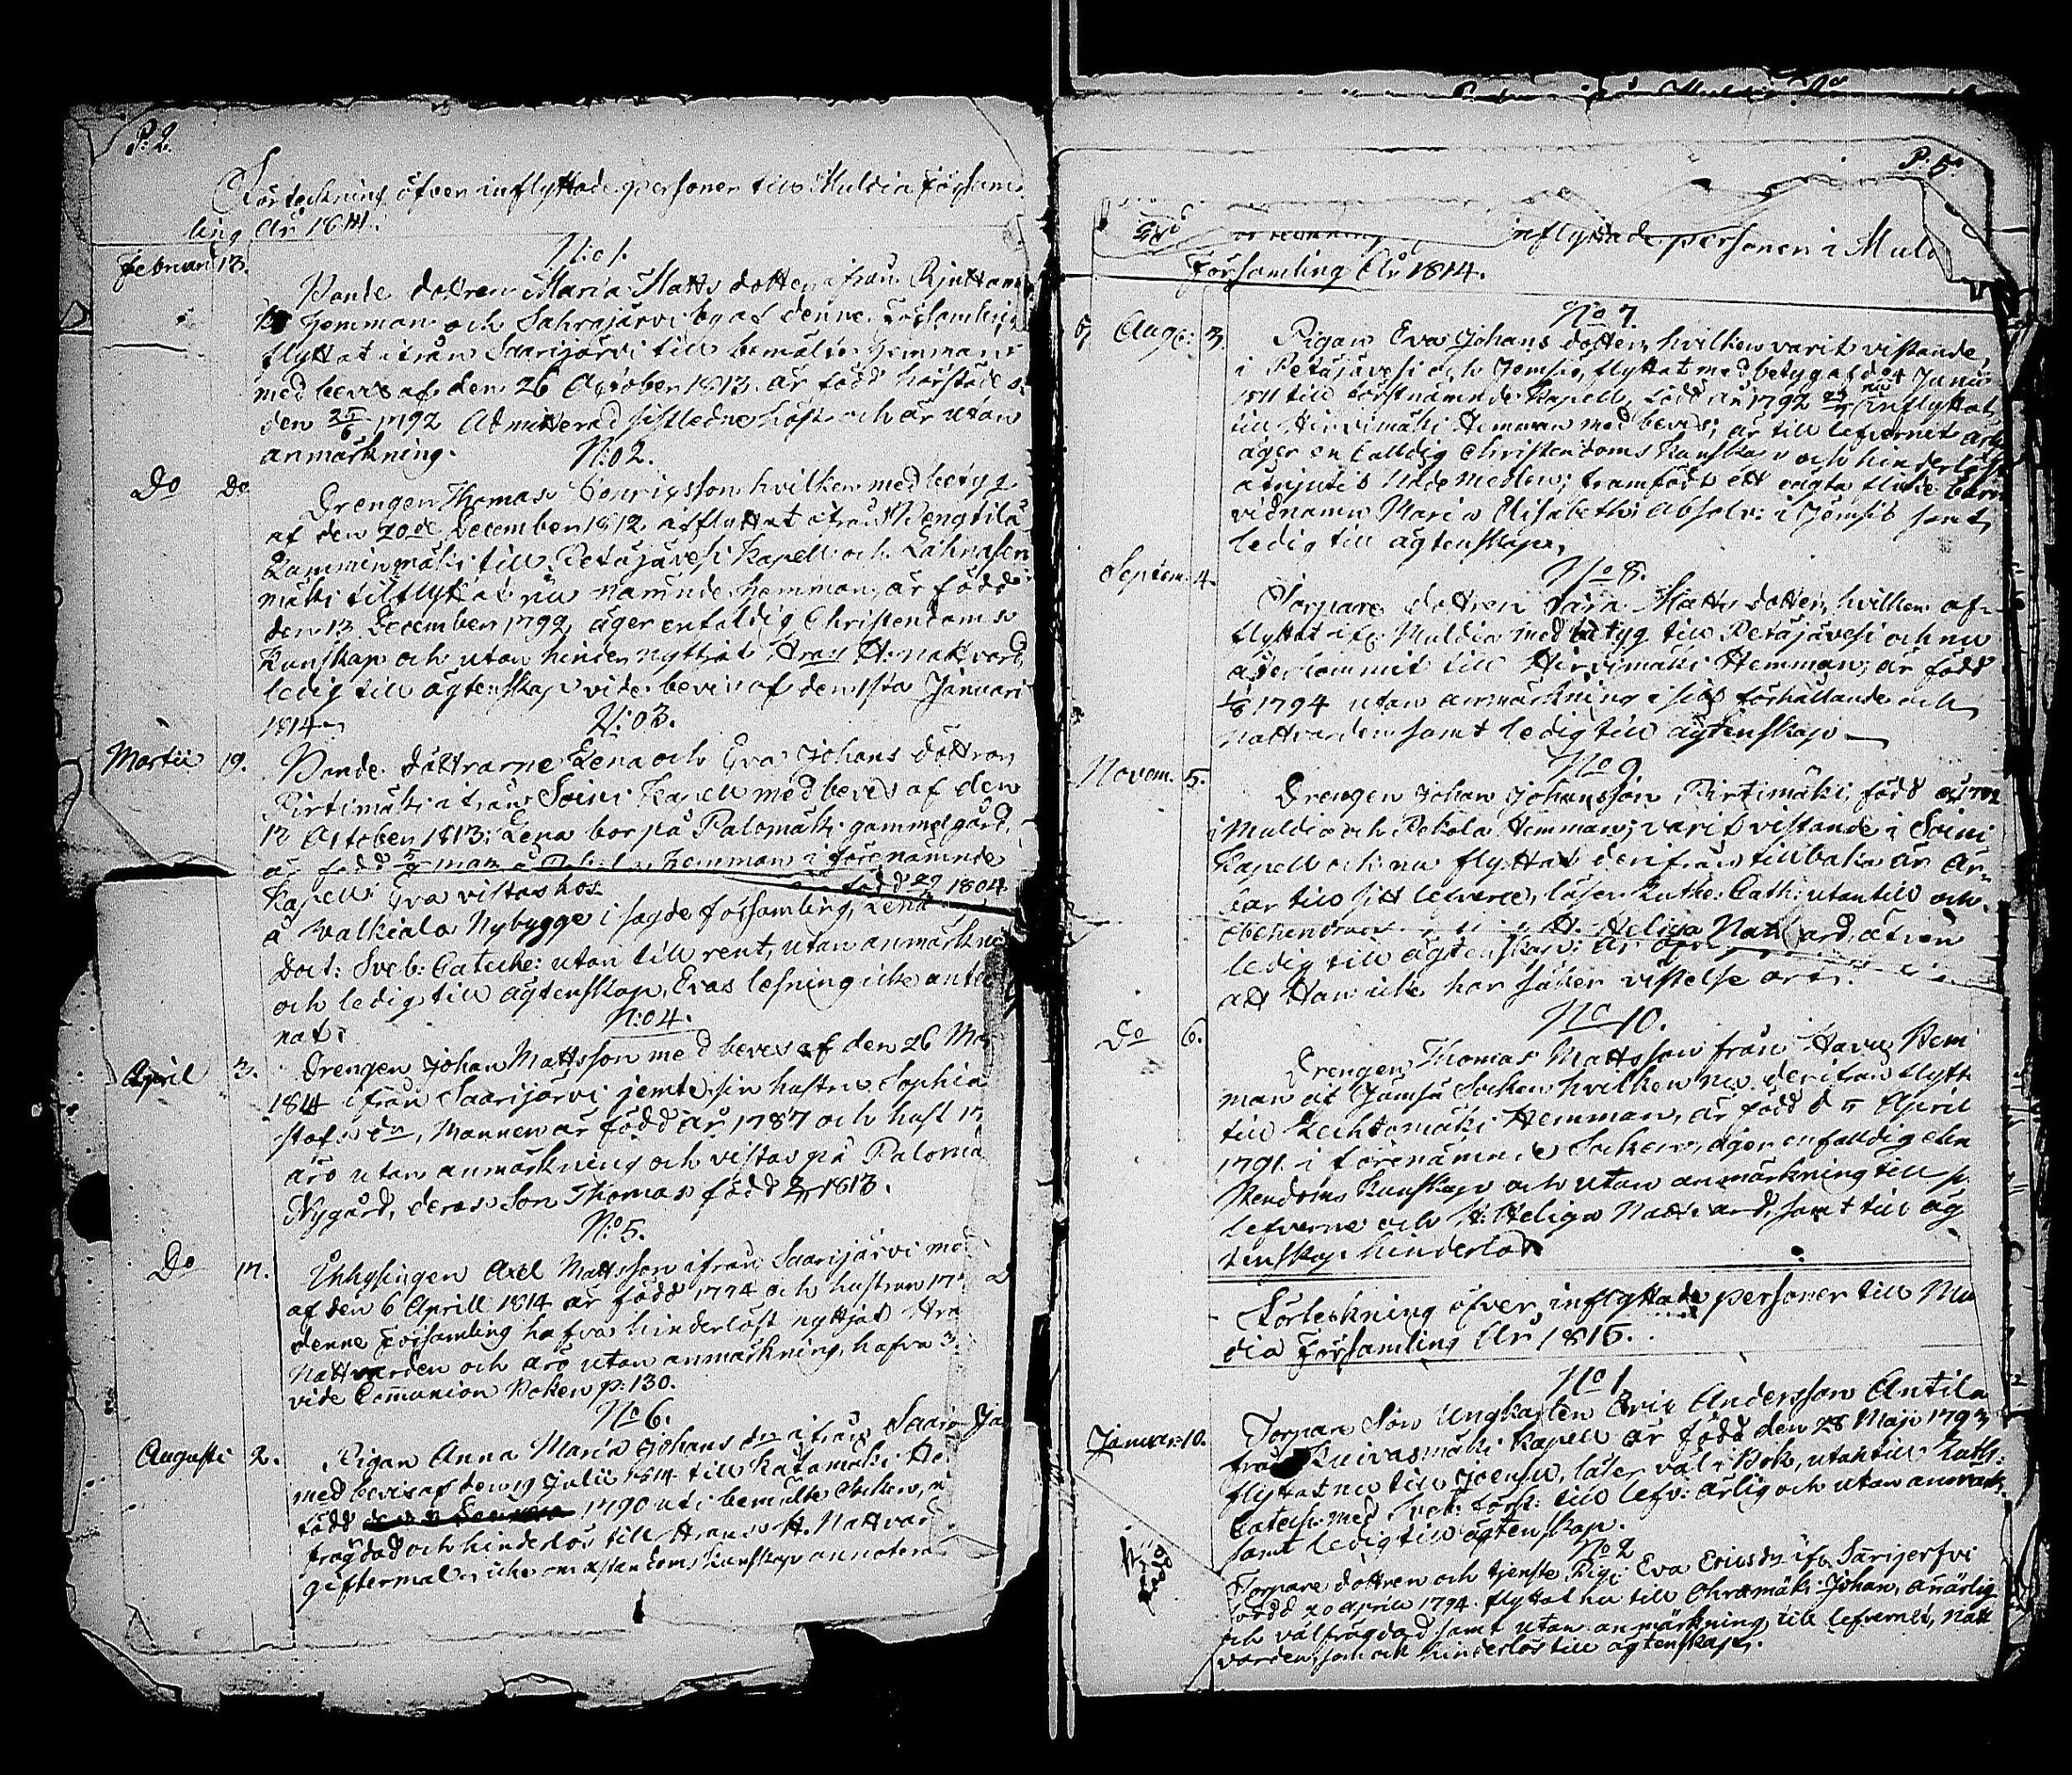 P. 2.
Förteckning öfver inflyttade personer till Muldia Församling
ling År 1814.
Februari 13.
N:o 1.
Bonde dottren Maria Matts dotter ifrån
Hemman och Sahrajärvi by af denne Församling
flyttat ifrån Saarijärvi till bemälte Hemman
med bevis af den 26 October 1813. är född härstädes
den 25/6 1792 Admitterad sistledne höst och är utan
anmärkning.
N:o 2.
Do Do
Drengen Thomas Henrigsson hvilken med betyg
af den 20de December 1812 afflyttat ifrån Pengtilä
Lamminmäki till Petäjävesi Kapell och Lahnasen
mäki tilflyttat nu nämnde hemman, är född
den 13 December 1792, äger enfaldig Christendoms
Kunskap och utan hinder nyttjat H: nattvard,
ledig till ägtenskap vide bevis af den 1sta Januari
1814.
N:o 3.
Martii 19.
Bonde döttrarne Lena och Eva Johans döttrar
Pirtimäki ifrån Soini Kapell med bevis af den
12 October 1813: Lena bor på Palomäki gammelgård,
är född hemman i förenämnde
Kapell: Eva vistas hos född 29 1804
å Valkiala Nybygge i sagde församling, Lena
Doct: Sveb: Cateche: utan till rent, utan anmärkning
och ledig till ägtenskap, Evas lesning icke anteck
nat.
N:o 4.
April 3.
Drengen Johan Mattsson med bevis af den 26 Mar
1814 ifrån Saarijärvi jemte sin hustru Sophia
stafs dr, Mannen är född år 1787 och hust 17
äro utan anmärkning och vistas på Paloma
Nygård, deras Son Thomas född 1813.
N:o 5.
Do 17.
Inhysingen Axel Mattsson ifrån Saarijärvi med
af den 6 Aprill 1814 är född 1774 och hustrun 17
denne Församling hafva hinderlöst nyttjat
Nattvarden och äro utan anmärkning, hafva 3
vide Communion Boken p. 130.
No 6.
Augusti 2.
Pigan Anna Maria Johans dr ifrån Saarijä
med bevis af den 19 Julii 1814 till Katamäki He
född 1790 uti bemälte Socken,
frägdad och hinderlös till H. Nattvar
giftermål, icke om Christendoms Kunskap annotera
P: 5.
inflyttade personer i Muld
Församling År 1814.
No 7.
Aug: 3.
Pigan Eva Johans dotter, hvilken varit vistande
i Petäjävesi och Jemsiö, flyttat med betyg af d: 4 Junii
1811 till förstnämnde Kapell, född år 1792 nu inflyttat
till Hirvimäki Hemman med bevis; är till lefvernet
äger enfalldig Christendoms Kunskap och hinderlöst
atnjutit Nådemedlen; framfödt ett oägta flicke barn
vid namn Maria Elisabeth; Absolv: i Jemsiö samt
ledig till ägtenskap.
No 8.
Septem: 4.
Torpare dottren Sara Matts dotter, hvilken af-
flyttat ifr: Muldia med betyg till Petäjävesi och nu
återkommit till Hirvimäki Hemman, är född
1/8 1794 utan anmärkning i sitt förhållande och
nattvarden samt ledig till ägtenskap
No 9
Novem. 5.
Drengen Johan Johansson Pirtimäki, född
i Muldia och Pekola Hemman; varit vistande i Soini
Kapell och nu flyttat derifrån tillbaka är är-
bar till sitt leverne, läser Luthe: Cath: utantill och
obehindrad H. Heliga Nattvard, äfven
ledig till ägtenskap;
att Han icke har säker vistelse ort.
No 10.
Do 6.
Drengen Thomas Mattsson från Havu Hem
man af Jämsä Socken hvilken nu derifrån flytt
till Lechtomäki Hemman, är född d 5 April
1791 i förenämnde Socken, äger enfalldig chri
stendoms Kunskap och utan anmärkning till
lefverne och H: Heliga Nattvard, samt till äg
tenskap hinderlös
Förteckning öfver inflyttade personer till Mul
dia Församling År 1815.
No 1
Januar: 10.
Torpare Son Ungkarlen Eric Andersson Antila
från Kuivasmäki Kapell är född den 28 Maji 1793
flyttat nu till Joensu, läser väl i Bok, utantill Luth:
Catech: med Sveb: förk: till lefv: ärlig och utan anmärk:
samt ledig till ägtenskap.
No 2
Torpare dottren och tjenste Pig: Eva Ericsdr ifr Sarijerfvi
född 20 Aprill 1794. flyttat nu till Ohramäki Johan, är ärlig
och välfrägdad samt utan anmärkning till lefvernet, Natt
varden, som och hinderlös till ägtenskap.